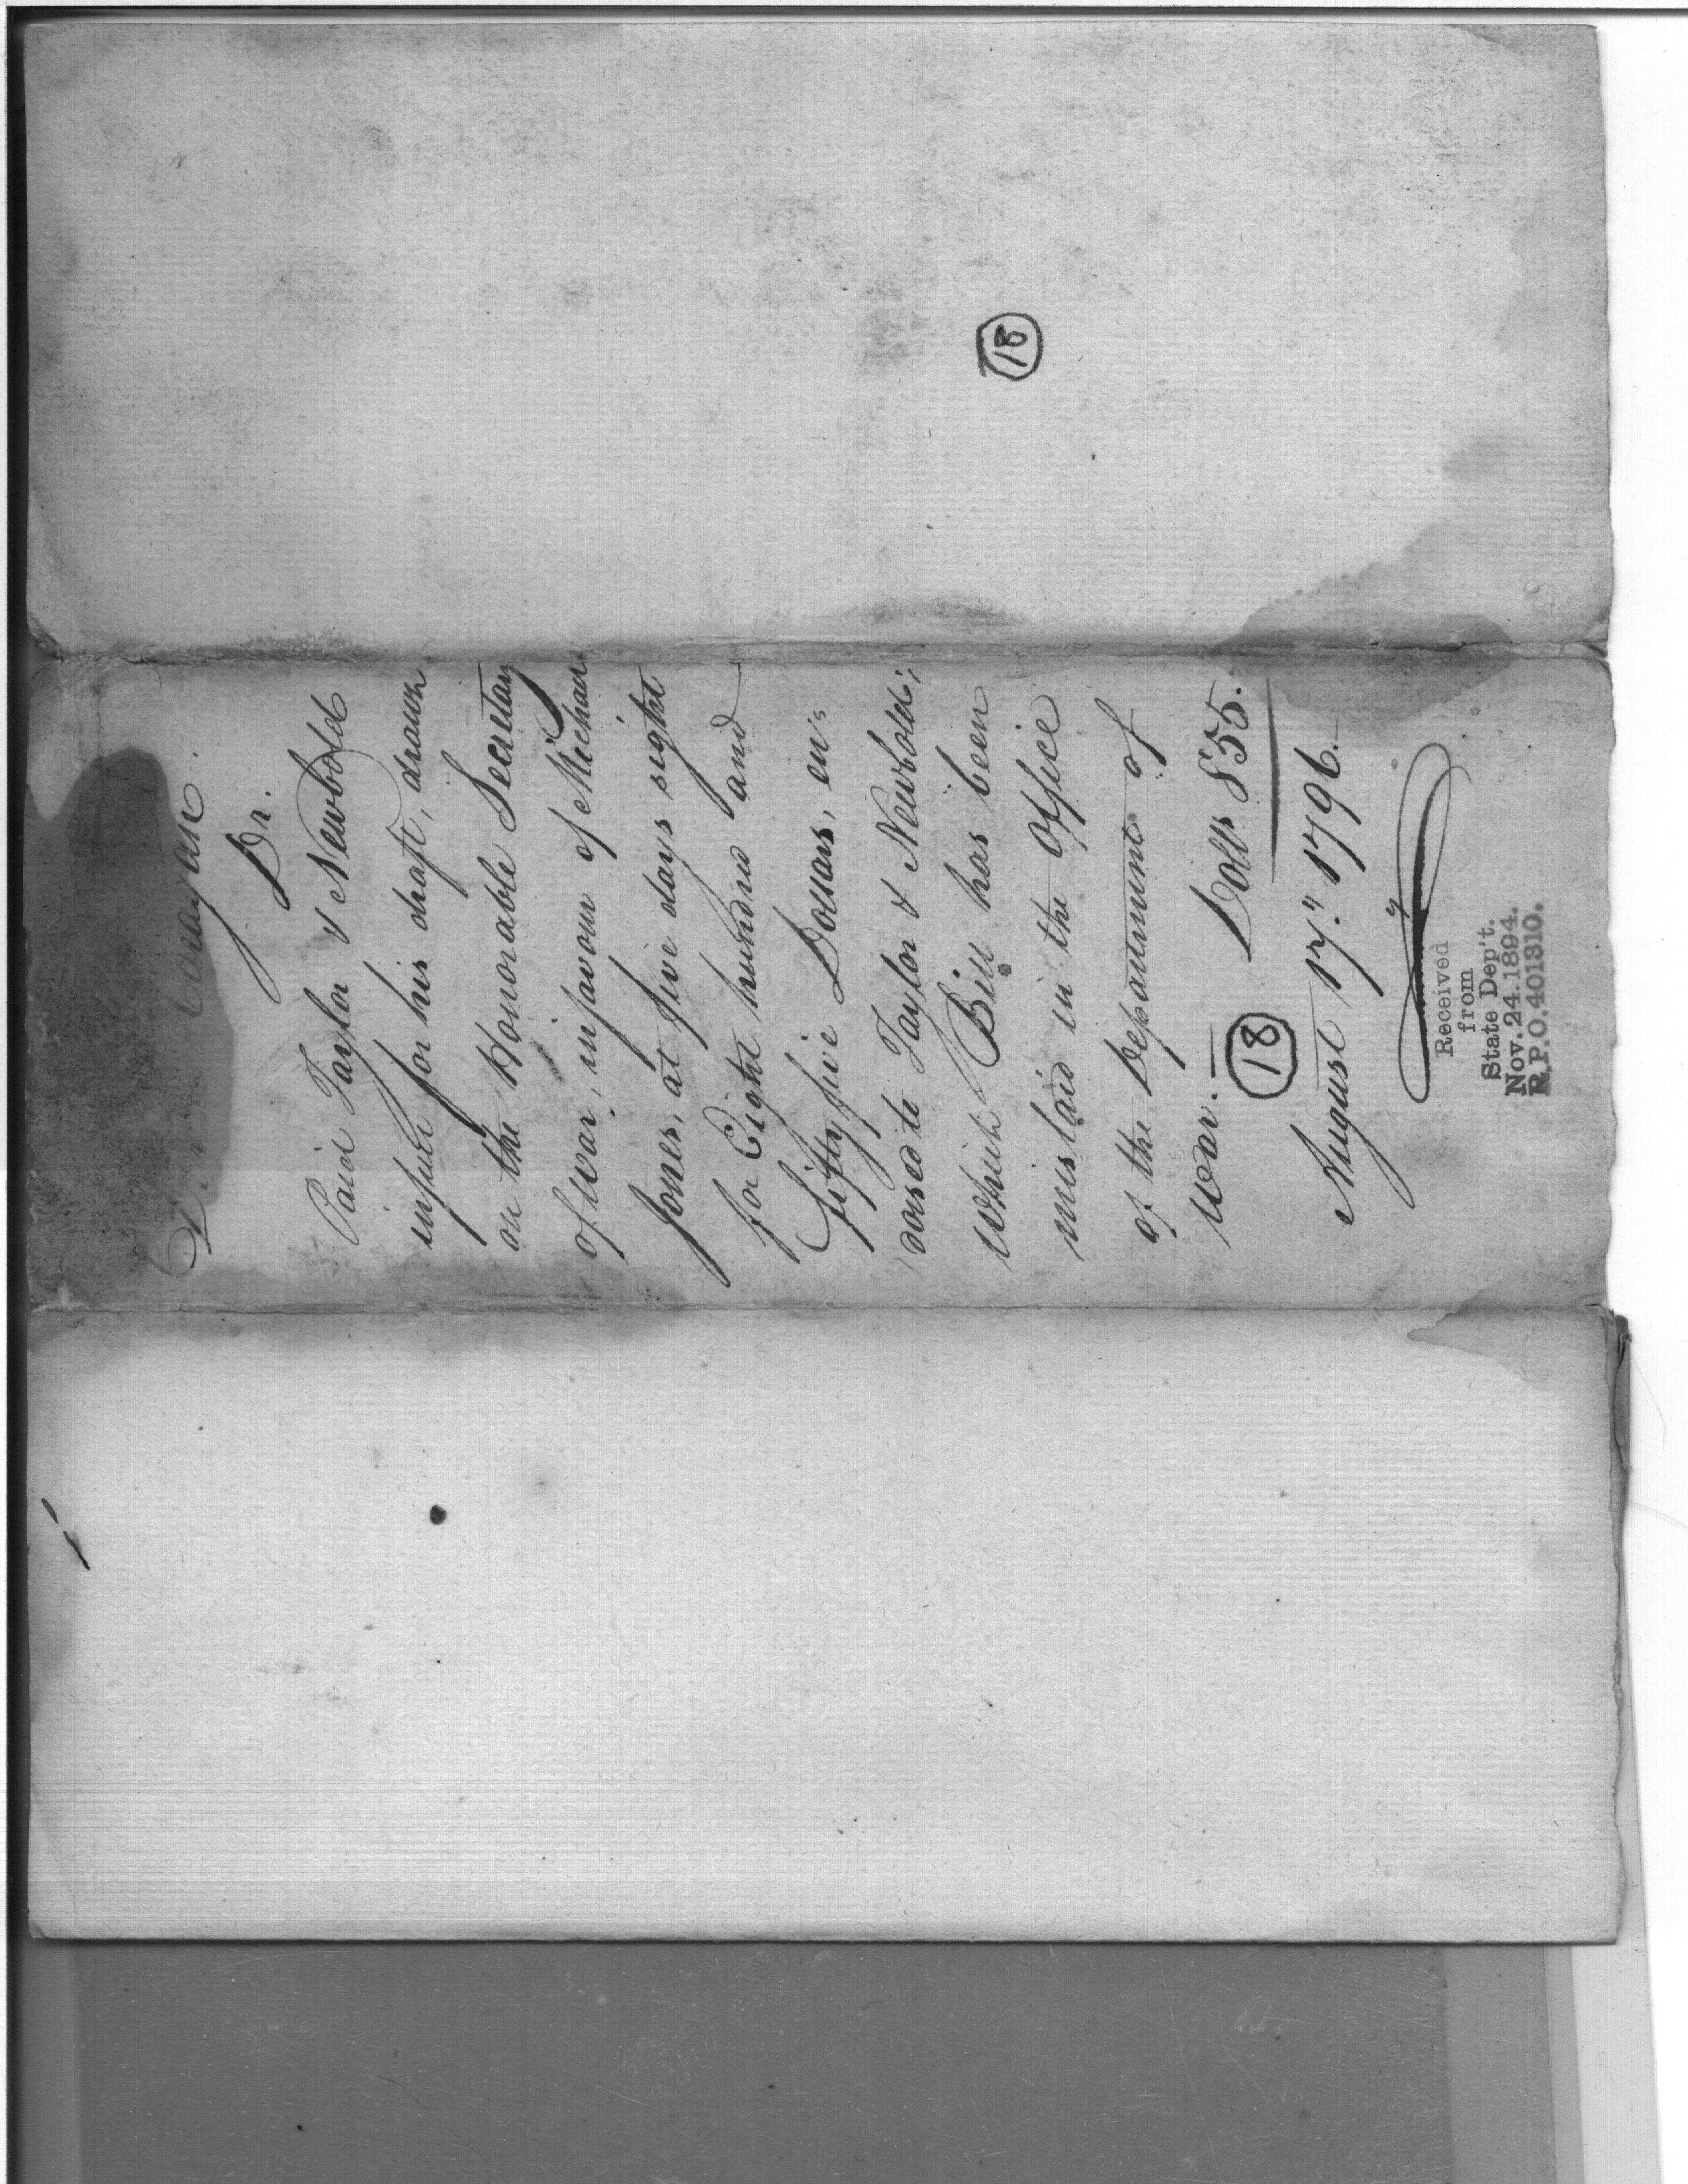 Dr.
Paid Taylor & Newbold
in full for his draft, drawn
on the Honorable Secretary
of War, in favour of Michael
Jones, at five days sight
for Eight hundred and
fifty five Dollars, en=
dorsed to Taylor & Newbold;
which Bill has been
mislaid in the Office
of the Department of
War. — Dolls 855.
18
August 17th 1796.
Received
from
State Dep't.
Nov. 24. 1894.
R.P.O. 401310.
18